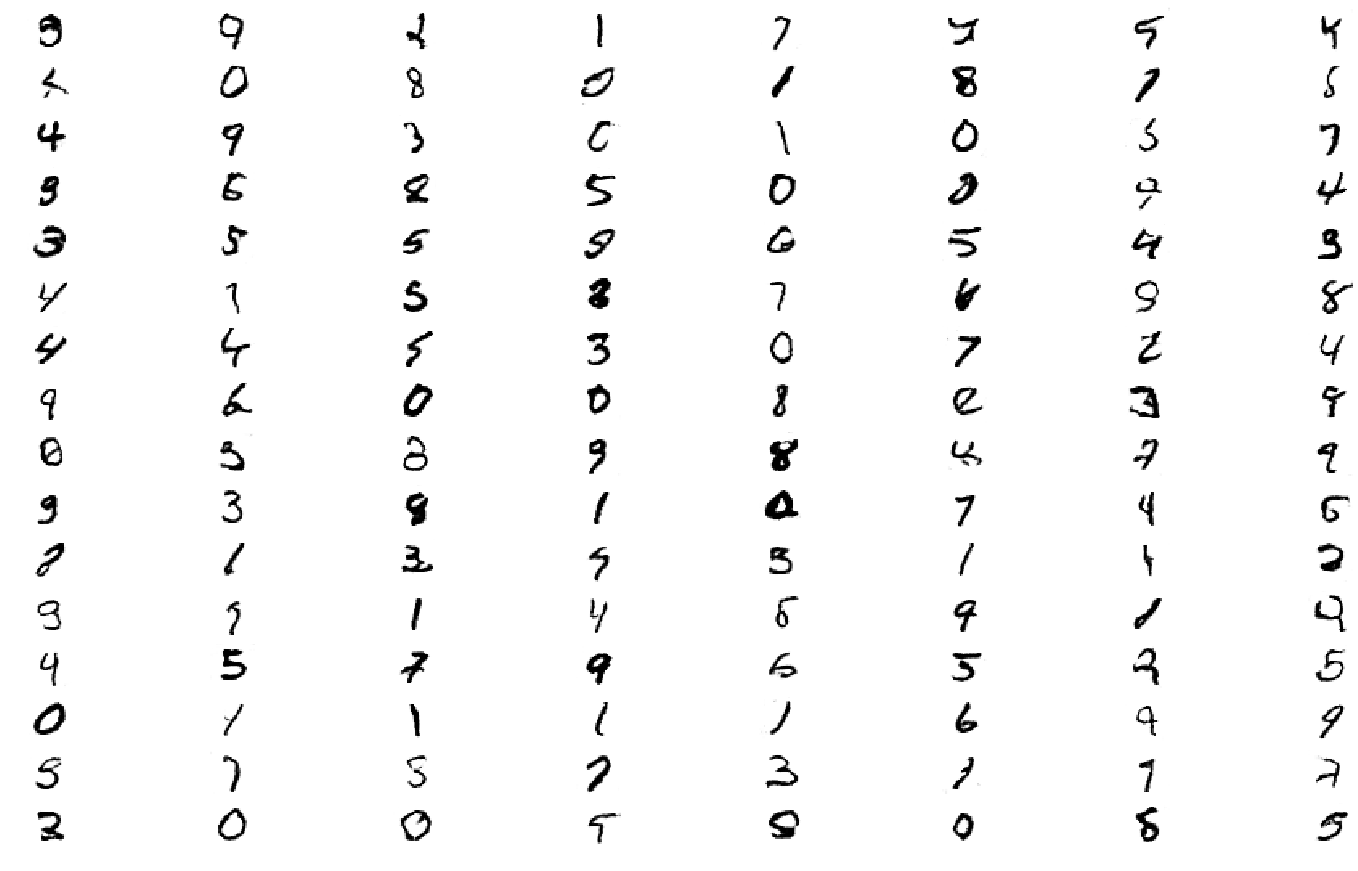 9 9 2 1 7 5 4
0 8 0 1 8 7 5
4 9 3 0 1 0 5 7
9 6 8 5 0 0 9 4
3 5 5 9 6 5 4 3
4 7 5 8 7 6 9 8
4 4 5 3 0 7 2 4
9 6 0 0 8 2 3 9
0 3 8 9 8 4 7 9
9 3 9 1 0 7 4 6
2 1 3 5 3 1 1 2
9 9 1 4 6 9 1
4 5 7 9 6 5 2 5
0 1 1 1 1 6 9 9
5 7 5 7 3 1 7 7
2 0 0 5 0 0 8 5